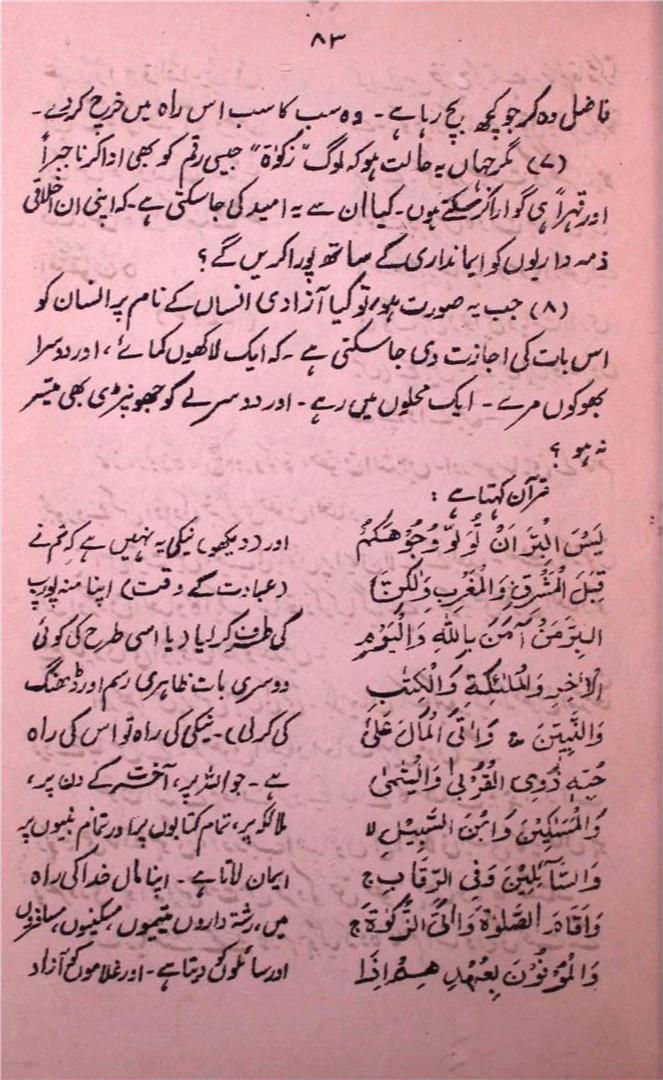 ۸۳
فاضل وہ کر جو کچھ بچ رہا ہے ۔ وہ سب کا سب اس راہ میں خرچ کر دے ۔
(۷) مگر جہاں یہ حالت ہو کہ لوگ "زکوٰۃ" جیسی رقم کو بھی ادا کرنا جبراً
اور قہراً ہی گوارا کر سکتے ہوں ۔ کیا ان سے یہ امید کی جا سکتی ہے ۔ کہ اپنی ان اخلاقی
ذمہ داریوں کو ایمانداری کے ساتھ پورا کریں گے ؟
(۸) جب یہ صورت ہو، تو کیا آزادی انساں کے نام پر انسان کو
اس بات کی اجازت دی جا سکتی ہے ۔ کہ ایک لاکھوں کمائے ، اور دوسرا
بھوکوں مرے ۔ ایک محلوں میں رہے ۔ اور دوسرے کو جھونپڑی بھی میسر
نہ ہو ؟
قرآن کہتا ہے :
لَیْسَ الْبِرَّ اَنْ تُوَلُّوْ وُجُوْھَکُمْ
قِبَلَ الْمَشْرِقِ وَالْمَغْرِبِ وَلٰکِنَّ
الْبِرَّ مَنْ اٰمَنَ بِاللّٰہِ وَالْیَوْمِ
الْاٰخِرِ وَالْمَلٰئِکَۃِ وَالْکِتٰبِ
وَالنَّبِیّٖنَ ج وَاٰتَی الْمَالَ عَلٰی
حُبِّہٖ ذَوِی الْقُرْبٰی وَالْیَتٰمٰی
وَالْمَسٰکِیْنَ وَابْنَ السَّبِیْلِ لا
وَالسَّآئِلِیْنَ وَفِی الرِّقَابِ ج
وَاَقَامَ الصَّلٰوۃَ وَاٰتَی الزَّکٰوۃَ ج
وَالْمُوْفُوْنَ بِعَھْدِھِمْ اِذَا
اور (دیکھو) نیکی یہ نہیں ہے کہ تم نے
(عبادت کے وقت) اپنا منہ پورب
کی طرف کر لیا (یا اسی طرح کی کوئی
دوسری بات ظاہری رسم اور ڈھنگ
کی کر لی) ۔ نیکی کی راہ تو اس کی راہ
ہے ۔ جو اللہ پر ، آخرت کے دن پر ،
ملائکہ پر ، تمام کتابوں پر اور تمام نبیوں پر
ایمان لاتا ہے ۔ اپنا مال خدا کی راہ
میں ، رشتہ داروں یتیموں ، مسکینوں ، مسافروں
اور سائلوں کو دیتا ہے ۔ اور غلاموں کو آزاد